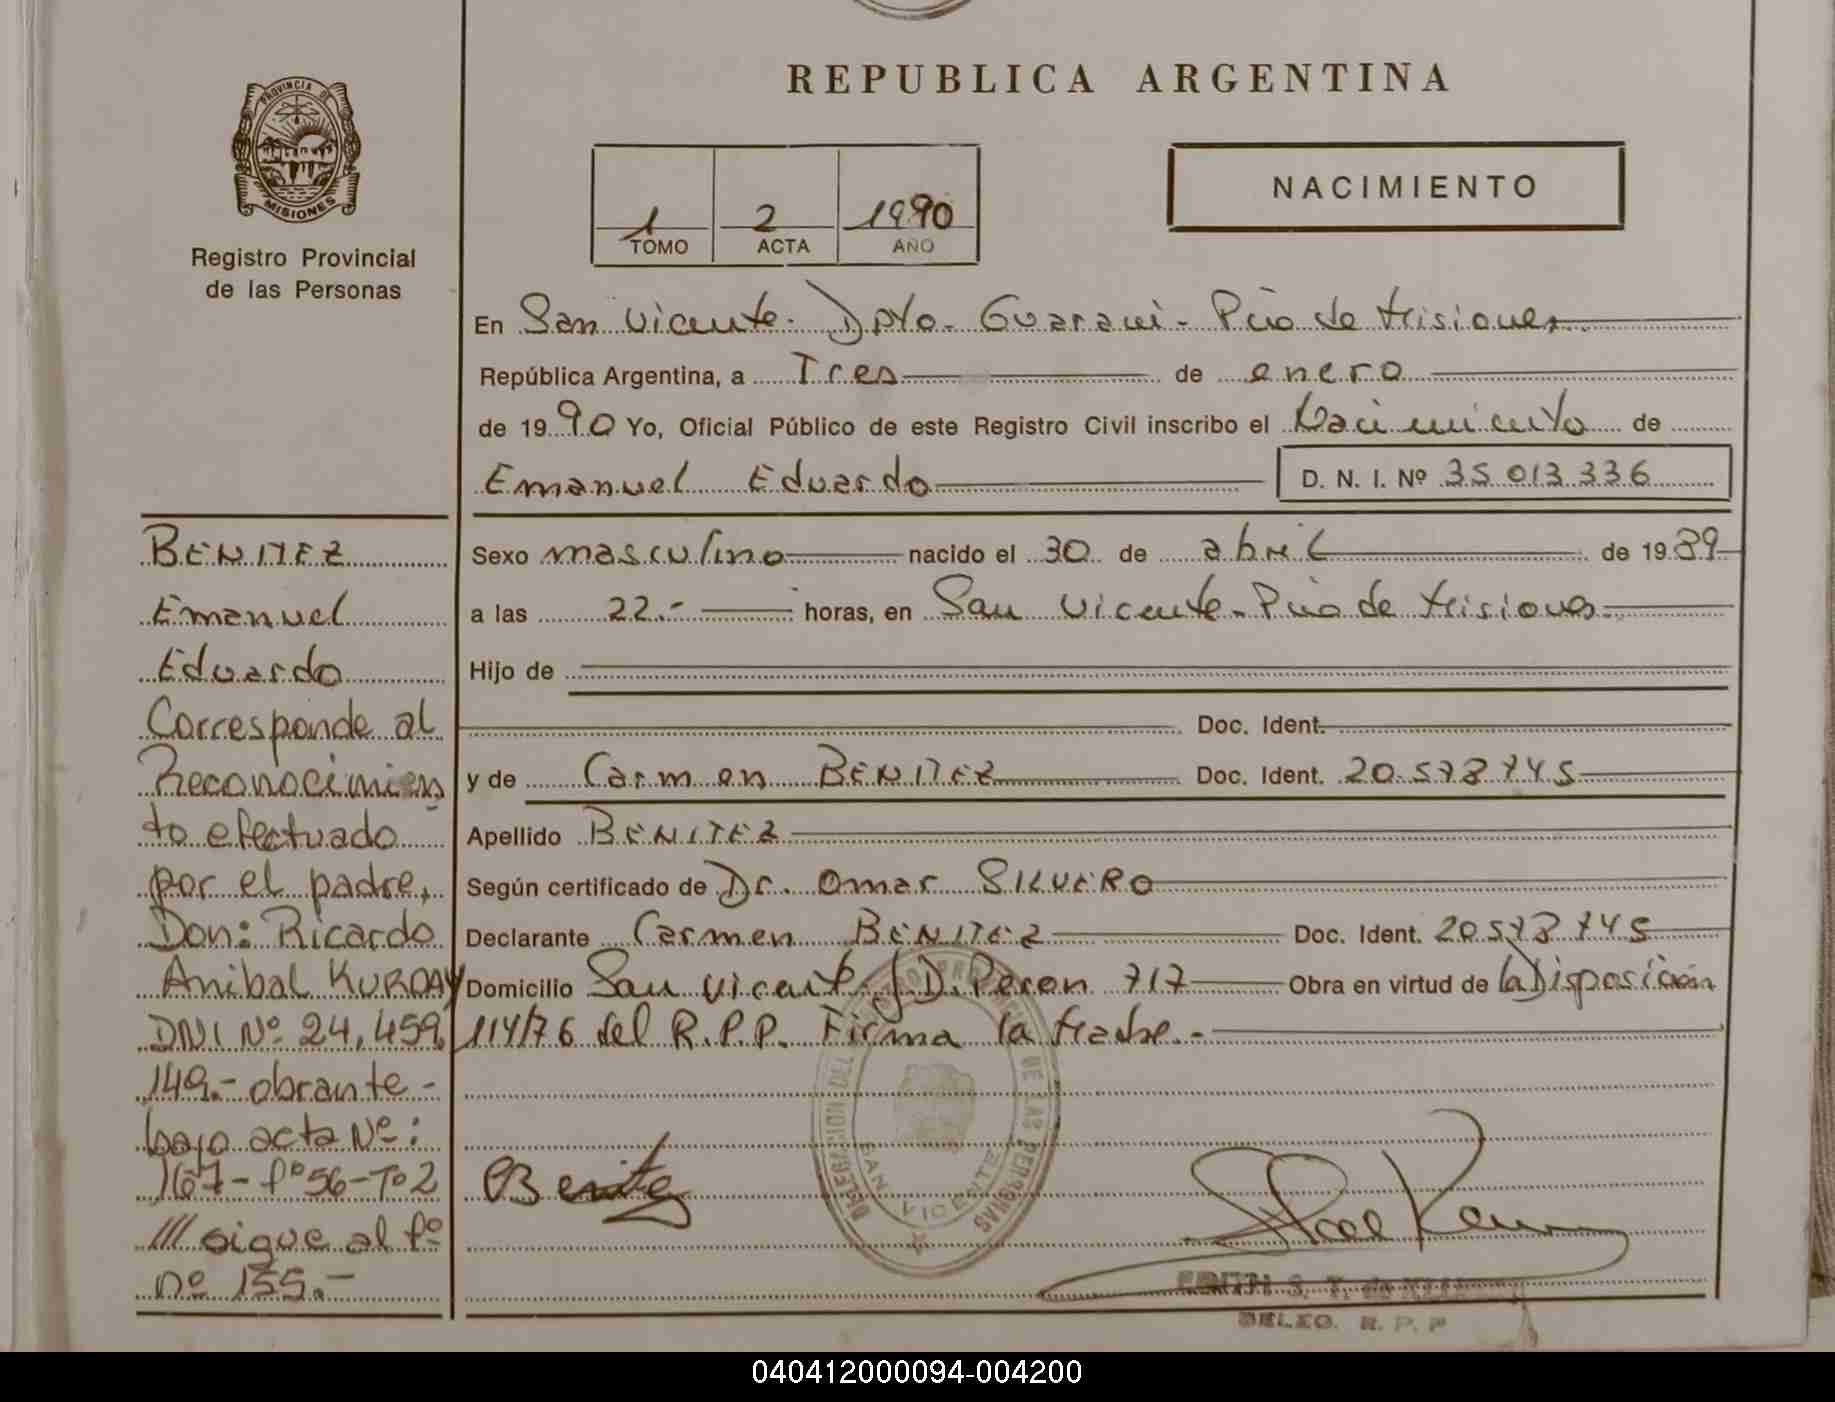 REPUBLICA ARGENTINA
PROVINCIA DE
MISIONES
Registro Provincial
de las Personas
1 2 1990
TOMO ACTA AÑO
NACIMIENTO
En San Vicente. Dpto. Guarani - Pcia de Misiones
República Argentina, a Tres de enero
de 1990 Yo, Oficial Público de este Registro Civil inscribo el Nacimiento de
Emanuel Eduardo D. N. I. Nº 35 013 336
Sexo masculino nacido el 30 de abril de 1989
a las 22.- horas, en San Vicente - Pcia de Misiones
Hijo de
Doc. Ident.
y de Carmen BENITEZ Doc. Ident. 20.573.745
Apellido BENITEZ
Según certificado de Dr. Omar SILVERO
Declarante Carmen BENITEZ Doc. Ident. 20.573.745
Domicilio San Vicente J.D. Peron 717 Obra en virtud de la Disposición
114/76 del R.P.P. Firma la Madre.-
BENITEZ
Emanuel
Eduardo
Corresponde al
Reconocimien
to efectuado
por el padre,
Don: Ricardo
Anibal KURDAY
DNI Nº 24,459,
149.- obrante -
bajo acta Nº:
167 - fº 56 - Tº 2
/// sigue al fº
nº 155.-
Benitez
DELEGACION DEL REGISTRO PROVINCIAL DE LAS PERSONAS
SAN VICENTE
EDITH S. T. de
DELEG. R. P. P
040412000094-004200